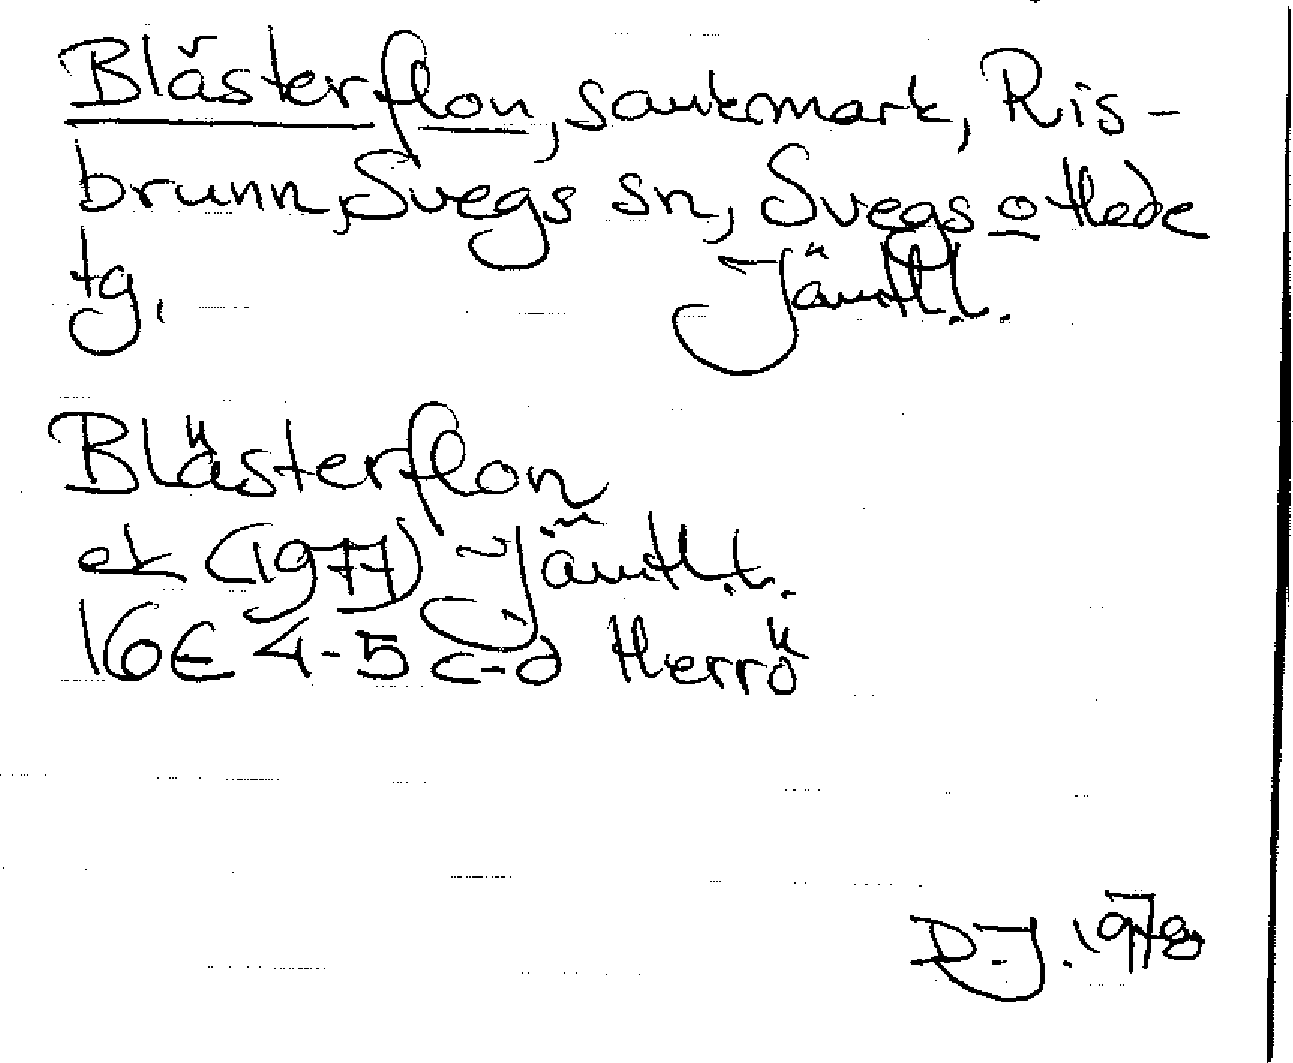 Blästerflon, sankmark, Ris-
brunn, Svegs sn, Svegs o Hede
tg.
Jämtl. l.
Blästerflon
ek (1977) Jämtl. l.
16E 4-5 c-d Herrö
D-J. 1978